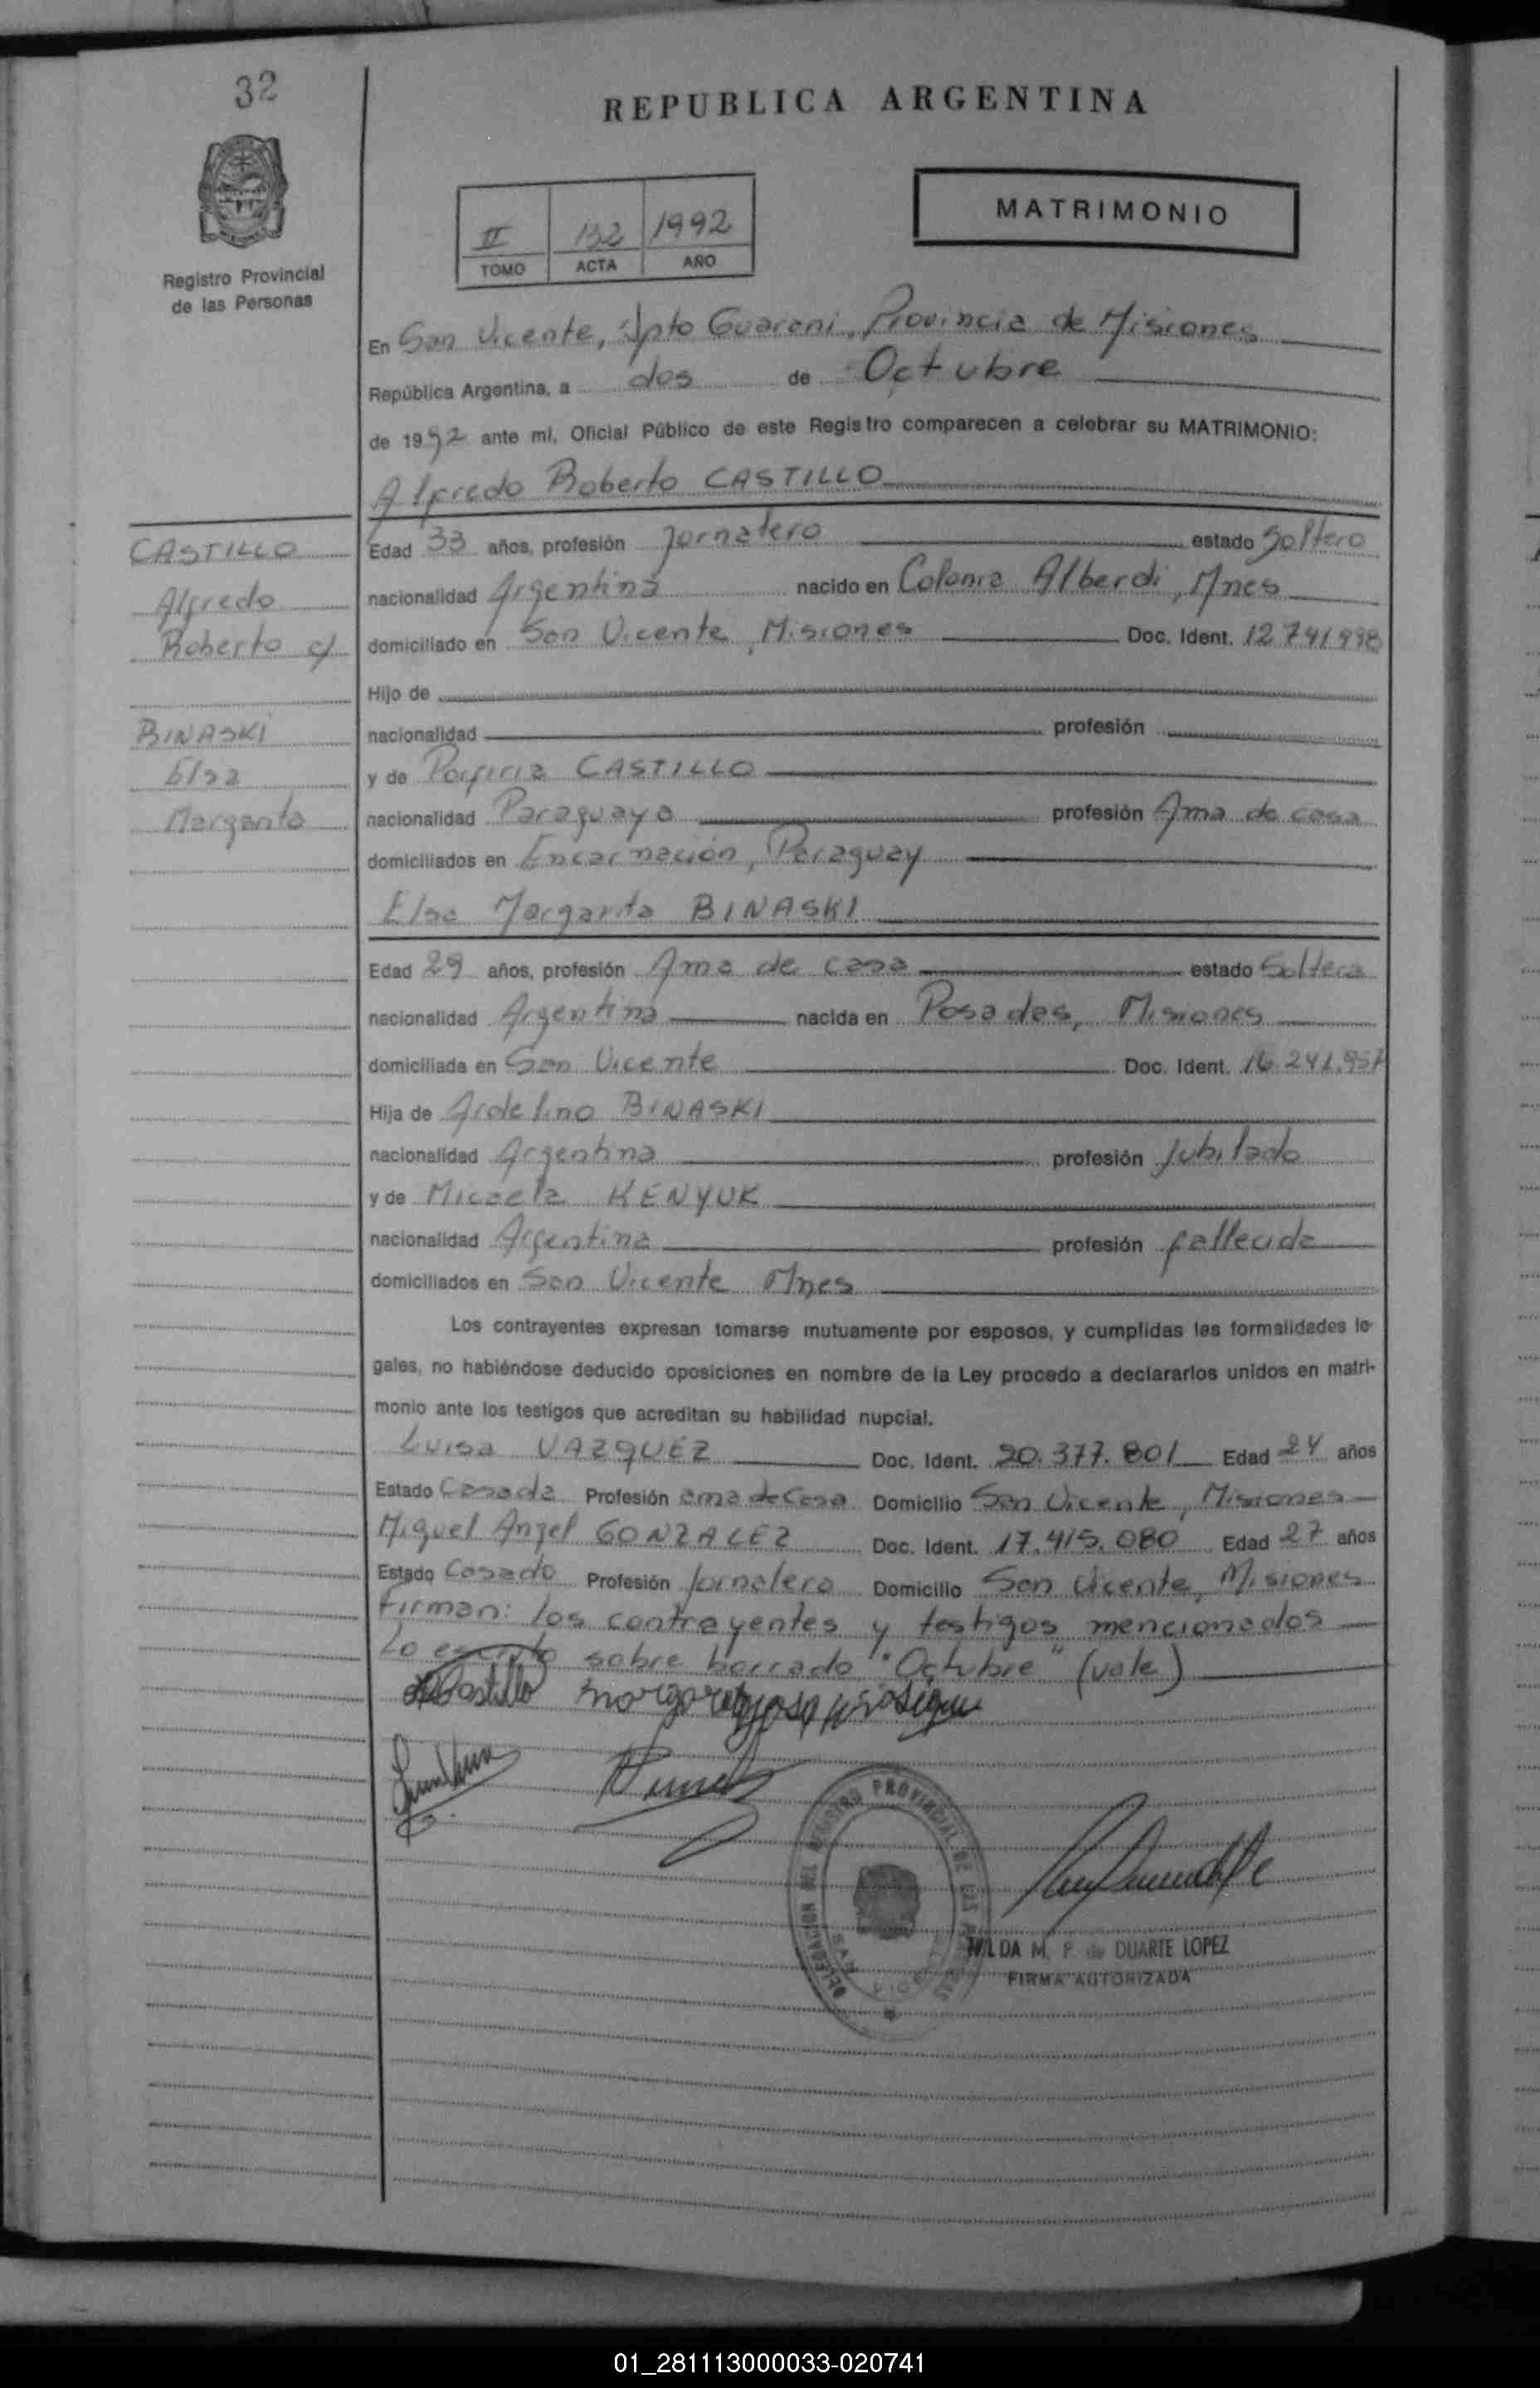 32
REPUBLICA ARGENTINA
Registro Provincial
de las Personas
II 132 1992
TOMO ACTA AÑO
MATRIMONIO
En San Vicente, Dpto Guarani, Provincia de Misiones
República Argentina, a dos de Octubre
de 1992 ante mí, Oficial Público de este Registro comparecen a celebrar su MATRIMONIO:
Alfredo Roberto CASTILLO
CASTILLO
Alfredo
Roberto c/
BINASKI
Elsa
Margarita
Edad 33 años, profesión Jornalero estado Soltero
nacionalidad Argentina nacido en Colonia Alberdi, Mnes
domiciliado en San Vicente, Misiones Doc. Ident. 12.741.998
Hijo de
nacionalidad profesión
y de Porfiria CASTILLO
nacionalidad Paraguaya profesión Ama de casa
domiciliados en Encarnación, Paraguay
Elsa Margarita BINASKI
Edad 29 años, profesión Ama de casa estado Soltera
nacionalidad Argentina nacida en Posadas, Misiones
domiciliada en San Vicente Doc. Ident. 16.241.957
Hija de Ardelino BINASKI
nacionalidad Argentina profesión Jubilado
y de Micaela KENYUK
nacionalidad Argentina profesión fallecida
domiciliados en San Vicente Mnes
Los contrayentes expresan tomarse mutuamente por esposos, y cumplidas las formalidades le-
gales, no habiéndose deducido oposiciones en nombre de la Ley procedo a declararlos unidos en matri-
monio ante los testigos que acreditan su habilidad nupcial.
Luisa VAZQUEZ Doc. Ident. 20.377.801 Edad 24 años
Estado Casada Profesión ama de Casa Domicilio San Vicente, Misiones
Miguel Angel GONZALEZ Doc. Ident. 17.415.080 Edad 27 años
Estado Casado Profesión Jornalero Domicilio San Vicente, Misiones
Firman: los contrayentes y testigos mencionados
Lo escrito sobre borrado "Octubre" (vale)
Castillo
DELEGACION DEL REGISTRO PROVINCIAL DE LAS
DA M. P. de DUARTE LOPEZ
FIRMA AUTORIZADA
01_281113000033-020741